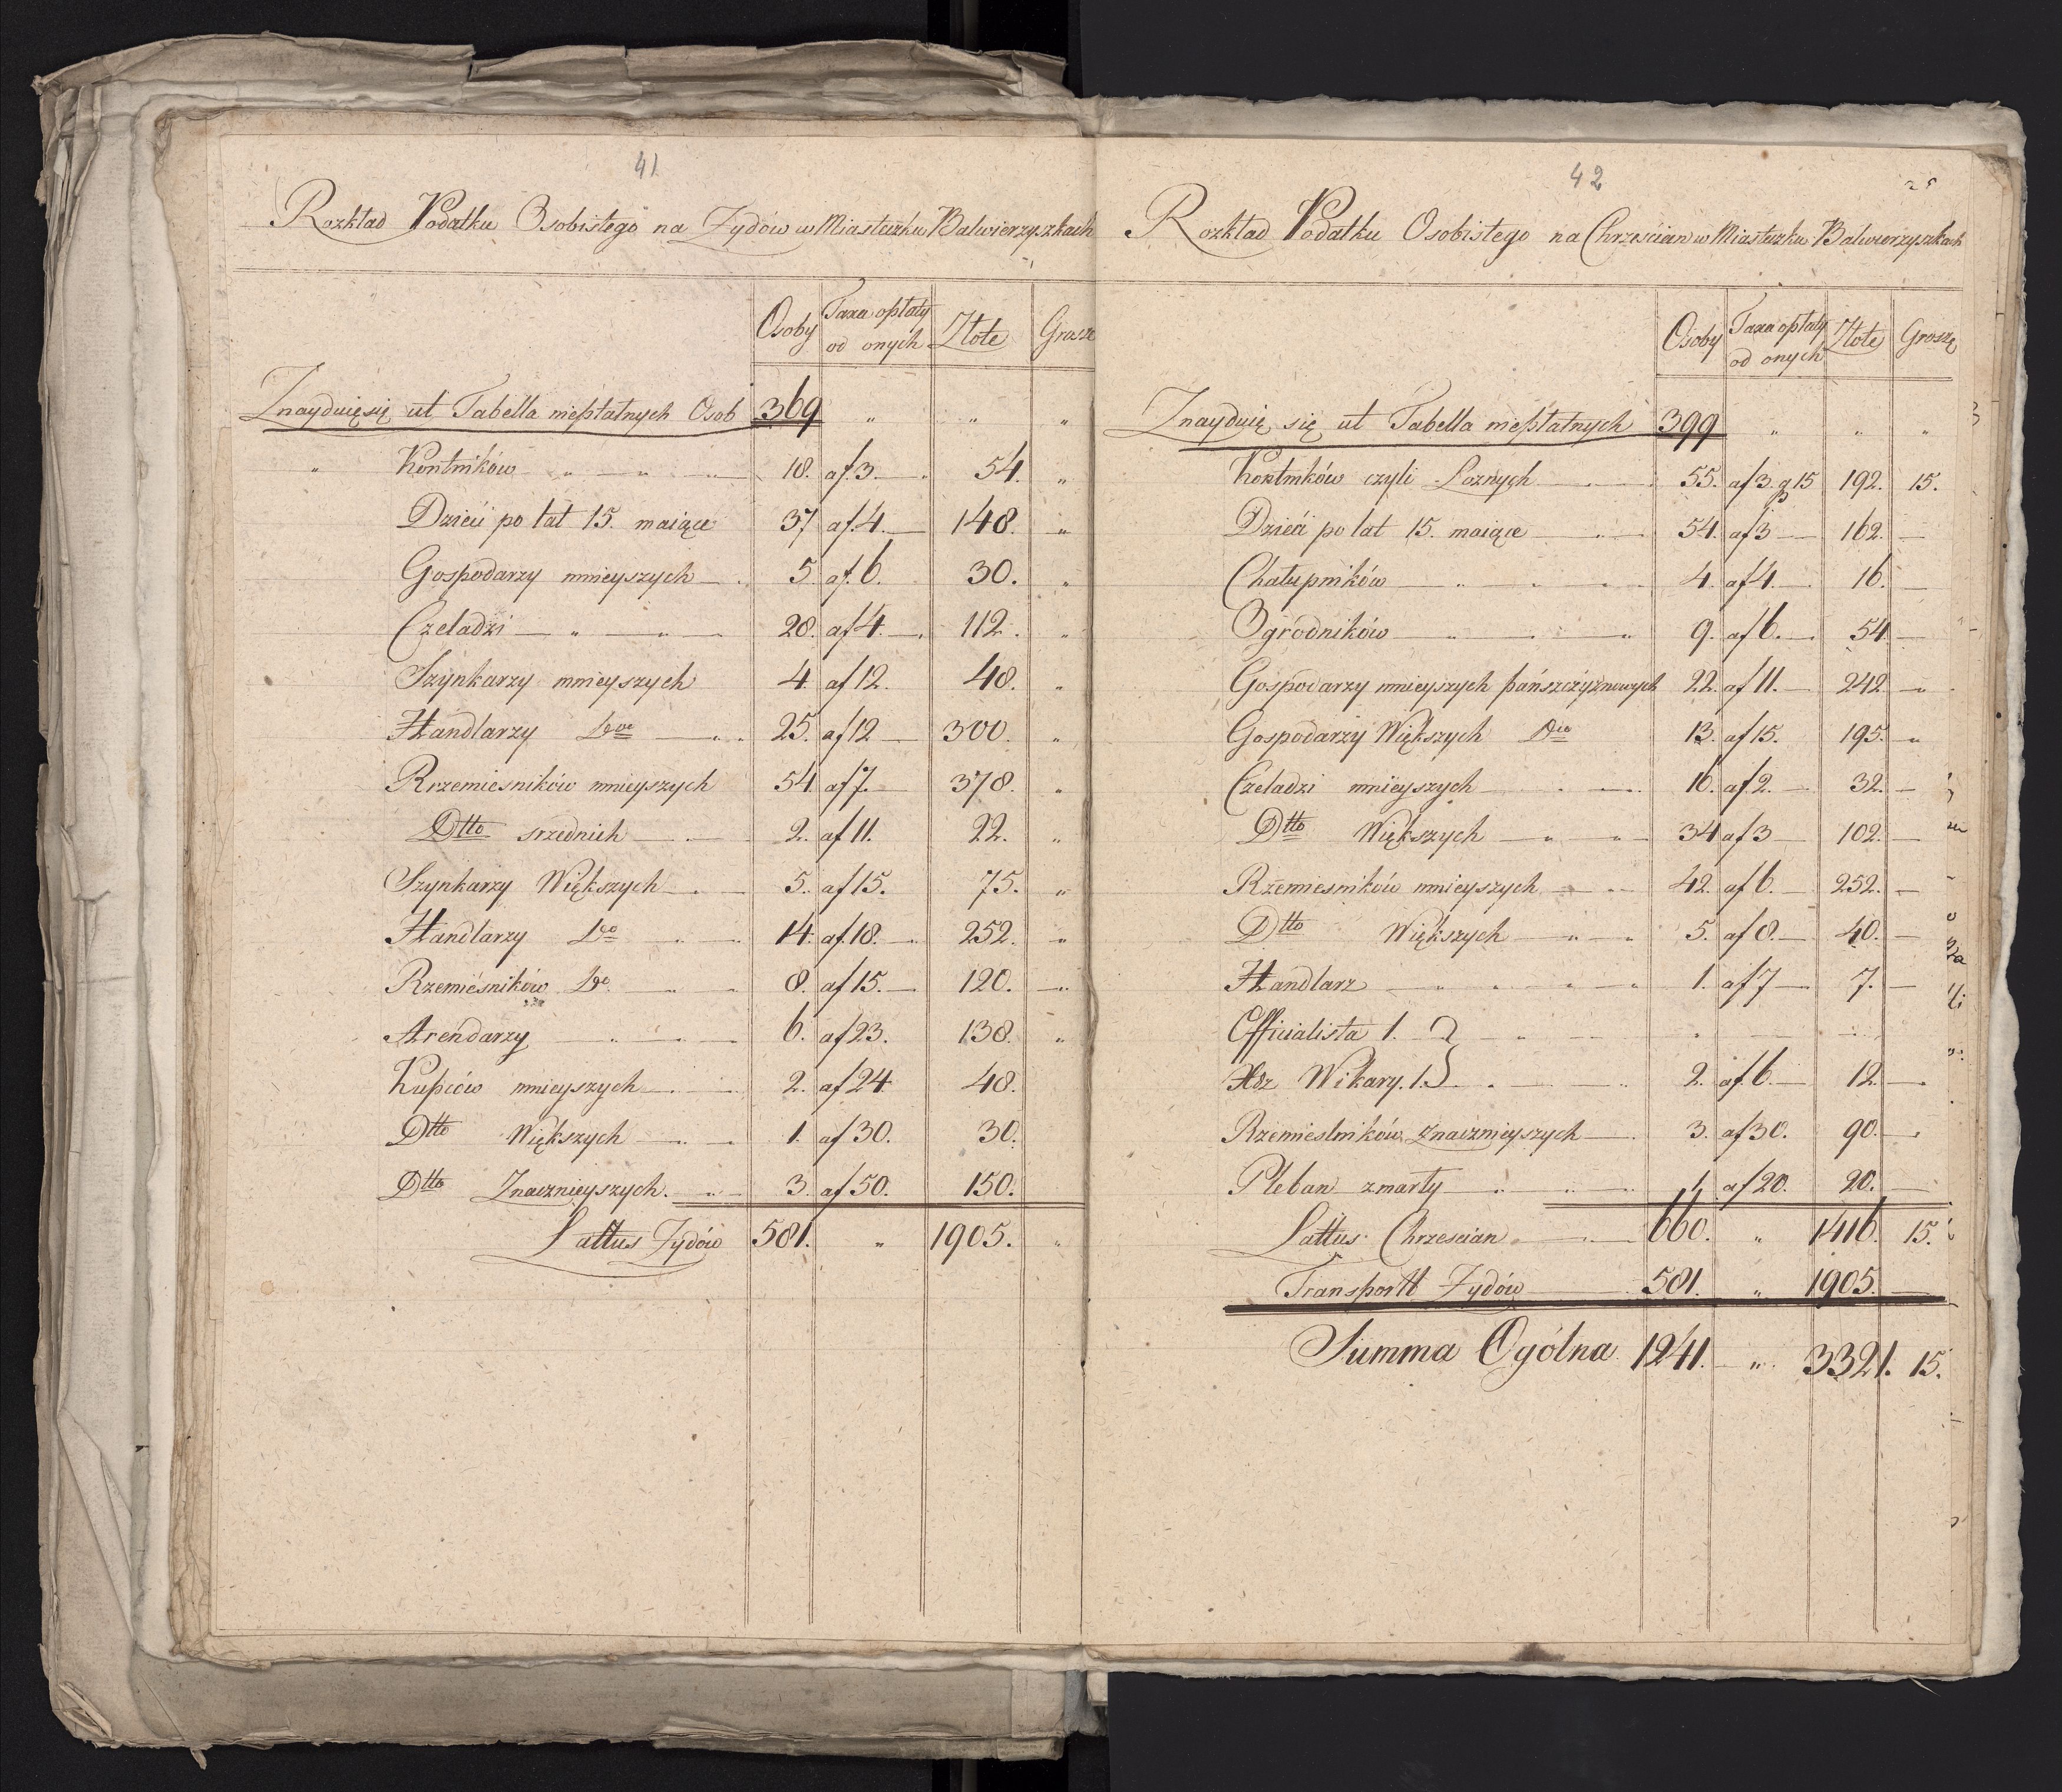 41
Rozkład Podatku Osobistego na Żydów w Miasteczku Balwierzyszkach
Osoby Taxa opłaty od onych Złote Grosze
Znayduię się ut Tabella niepłatnych Osob 369 " " "
" Kontników " " 18. af 3. 54. "
Dzieći po lat 15. maiące 37 af. 4. 148. "
Gospodarzy mnieyszych 5. af. 6. 30. "
Czeladzi " " 28. af 4. 112. "
Szynkarzy mnieyszych 4. af 12. 48. "
Handlarzy 25. af 12 300. "
Rzemiesników mnieyszych 54. af 7. 378. "
Dtto srzednich 2. af 11. 22. "
Szynkarzy Większych 5. af 15. 75. "
Handlarzy Do 14. af. 18. 252. "
Rzemieśników Do. 8. af 15. 120. "
Arendarzy 6. af 23. 138. "
Kupców mnieyszych 2. af 24 48.
Dtto Większych 1. af 30. 30.
Dtto Znacznieyszych. 3. af 50. 150.
Lattus Żydów 581. " 1905. "
42
Rozkład Podatku Osobistego na Chrześcian w Miasteczku Balwierzyszkach
Osoby Taxa opłaty od onych Złote Groszę
Znayduię się ut Tabella niepłatnych 399 " " "
Kontników czyli Loznych 55. af 3. g 15 192. 15.
Dzieći po lat 15. maiące 54. af 3 162.
Chałupników 4. af 4. 16.
Ogrodników 9. af 6. 54
Gospodarzy mnieyszych pańszczyznowych 22. af 11. 242 "
Gospodarzy Większych Dto 13. af 15. 195. "
Czeladzi mnieyszych 16. af 2. 32.
Dtto Większych 34 af 3 102.
Rzemiesników mnieyszych 42. af 6. 252.
Dtto Większych 5. af 8. 40.
Handlarz 1. af 7 7.
Officialista 1.
Xdz Wikary. 1. 2. af. 6. 12.
Rzemieslników znacznieyszych 3. af 30. 90.
Pleban zmarły 1. af 20. 20.
Lattus Chrzescian 660. " 1416. 15.
Transportt Żydów 581. " 1905.
Summa Ogólna 1241. " 3321. 15.